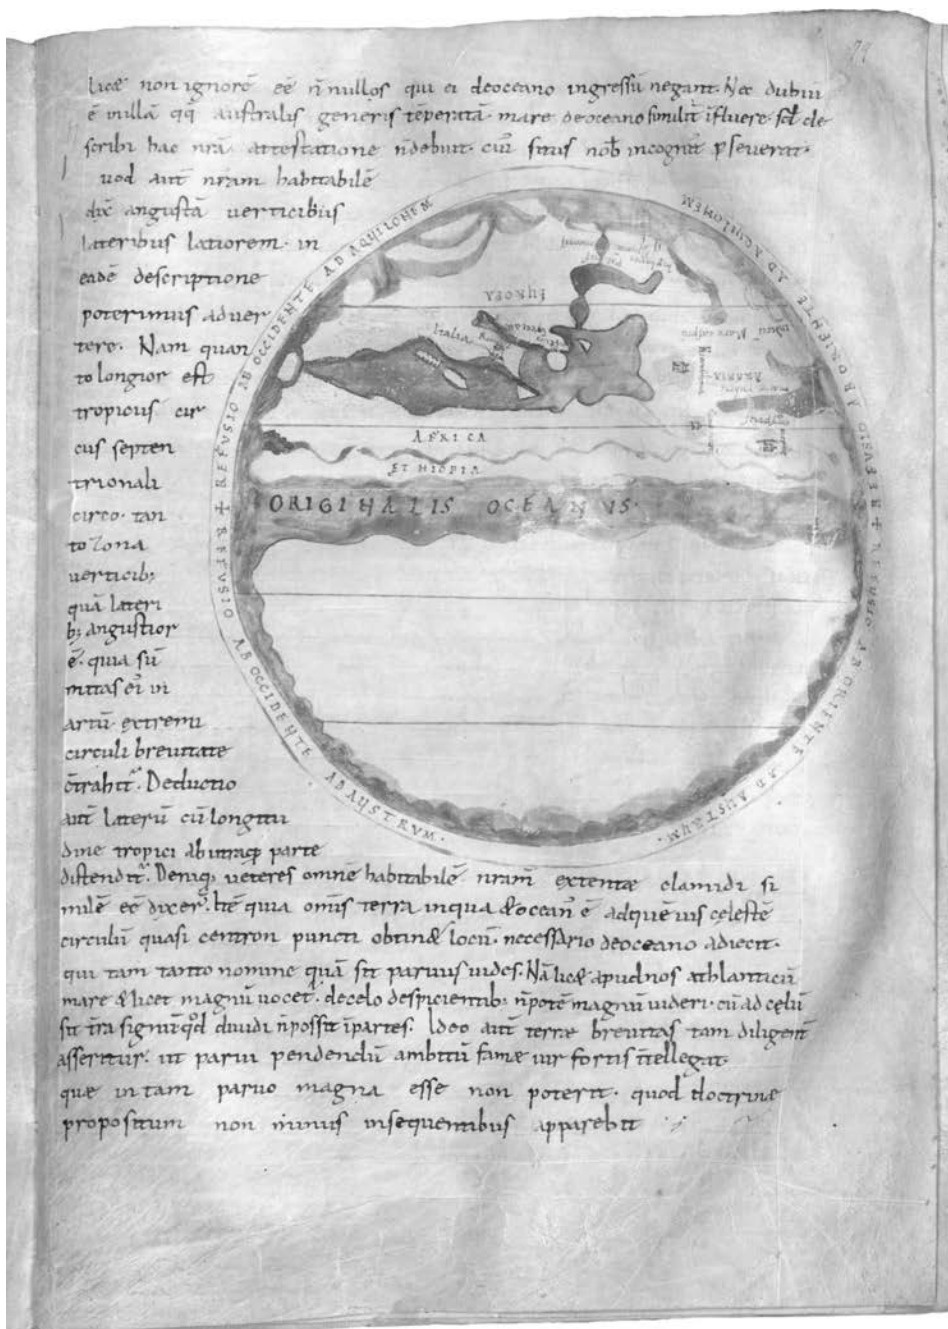 licæ non ignorē eē n̄ nullos qui ei deoceano ingressū negant. Nec dubiū
ē inillā qq̄ australis generis tēperatā mare deoceano similit̄ īfluere. sed de
scribi hac nrā attestatione n̄debuit. cui' situs nob̄ incognit' pseverat.
uod aut̄ nrām habitabilē
dix̄ angustā verticibus
lateribus latiorem. in
eadē descriptione
poterimus adver
tere. Nam quan
to longior est
tropicus cir
cus septen
trionali
circo. tan
to zona
verticib;
quā lateri
b; angustior
ē. quia sū
mitas ei' in
artū extremi
circuli brevitate
c̄trahit'. Deductio
aut̄ laterū cū longitu
dine tropici ab utraq; parte
distendit'. Deniq; veteres omnē habitabilē nrām extentæ clamidi si
milē eē dixer̄. Itē quia omīs terra inqua & ocean' ē adquēvis cęlestē
circulū quasi centron puncti obtin& locū. necessario deoceano adiecit.
qui tam tanto nomine quā sit parvus vides. Nā licæ apudnos athlanticū
mare & licet magnū vocet'. decelo despicientib; n̄potē magnū videri. cū ad cęlū
sit t̄ra signū qđ dividi n̄possit īpartes. Ideo aut̄ terræ brevitas tam diligent̄
asseritur. ut parvi pendendū ambitū famæ vir fortis ītellegat.
quæ in tam parvo magna esse non poterit. quod doctrinę
propositum non minus insequentibus apparebit
REFUSIO AB OCCIDENTE AD AQUILONEM
REFUSIO AB ORIENTE AD AQUILONEM
REFUSIO AB OCCIDENTE AD AUSTRUM.
REFUSIO AB ORIENTE AD AUSTRUM.
EUROPA
Italia
Mare caspiū
ARABIA
AFRICA
ETHIOPIA
ORIGINALIS OCEANUS.